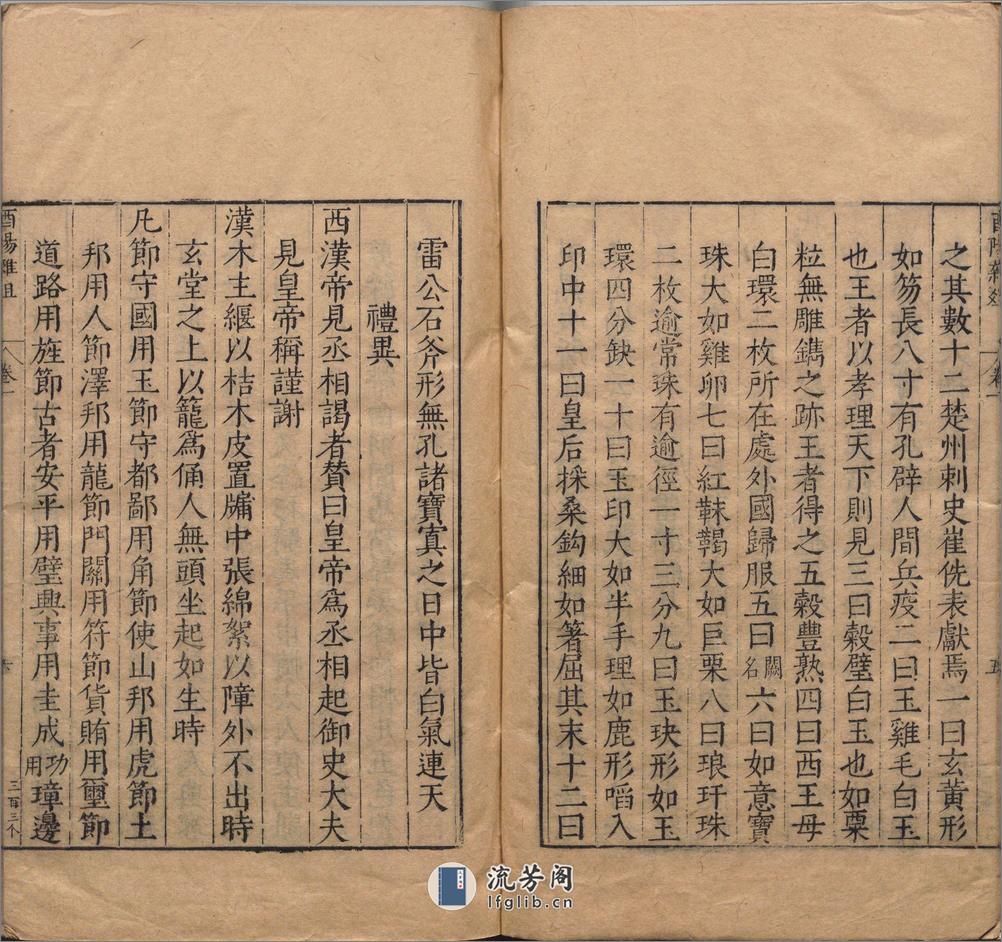 之其數十二楚州刺史崔侁表獻焉一曰玄黃形
如笏長八寸有孔辟人間兵疫二曰玉雞毛白玉
也王者以孝理天下則見三曰穀璧白玉也如粟
粒無雕鐫之跡王者得之五穀豐熟四曰西王母
白環二枚所在處外國歸服五曰闕名六曰如意寶
珠大如雞卵七曰紅靺鞨大如巨栗八曰琅玕珠
二枚逾常珠有逾徑一寸三分九曰玉玦形如玉
環四分缺一十曰玉印大如半手理如鹿形啗入
印中十一曰皇后採桑鈎細如箸屈其末十二曰
雷公石斧形無孔諸寶寘之日中皆白氣連天
禮異
西漢帝見丞相謁者贊曰皇帝爲丞相起御史大夫
見皇帝稱謹謝
漢木主纒以桔木皮置牖中張綿絮以障外不出時
玄堂之上以籠爲俑人無頭坐起如生時
凡節守國用玉節守都鄙用角節使山邦用虎節土
邦用人節澤邦用龍節門關用符節貨賄用璽節
道路用旌節古者安平用璧興事用圭成功用璋邊
酉陽雜俎
卷一
三百三个
流芳阁
lfglib.cn